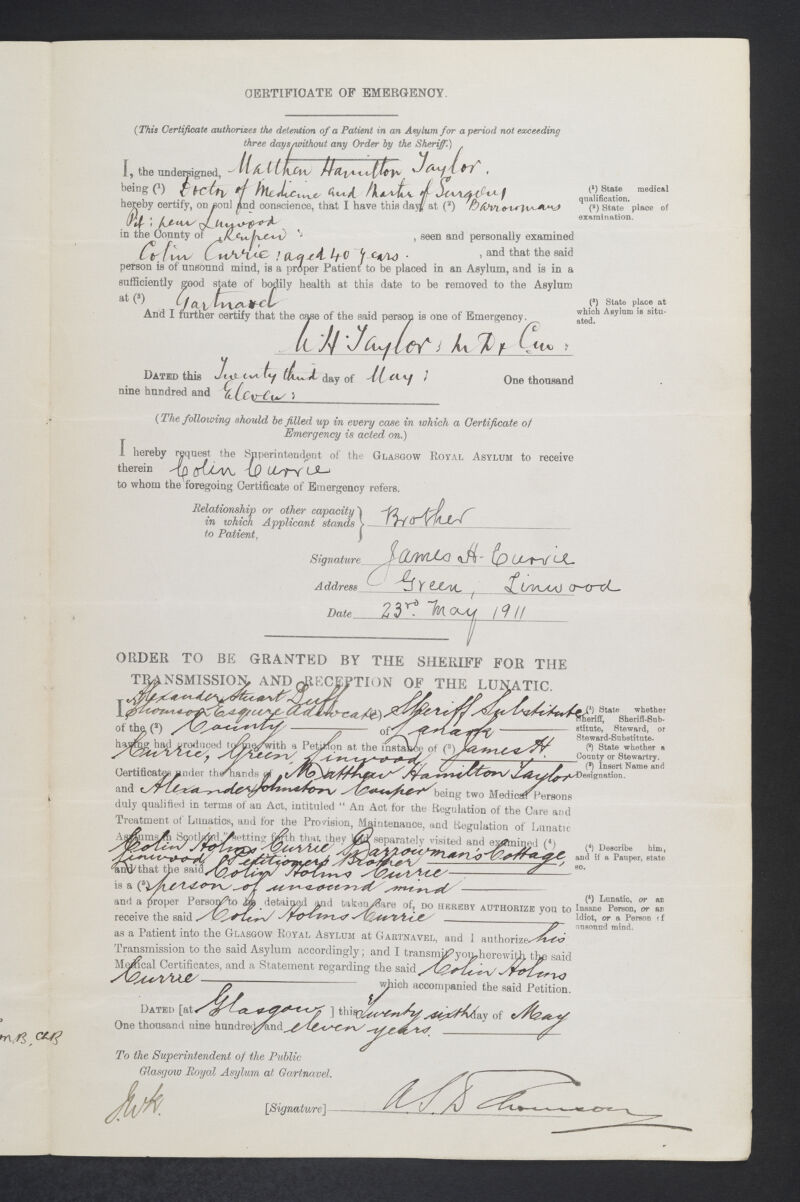 CERTIFICATE OF EMERGENCY.
(This Certificate authorizes the detention of a Patient in an Asylum for a period not exceeding
three days without any Order by the Sheriff.)
I, the undersigned, Matthew Hamilton Taylor.
being (¹) Doctor of Medicine and Master of Surgery
hereby certify, on soul and conscience, that I have this day, at (²) Barrowmans
Pit: near Linwood
in the County of Renfrew: , seen and personally examined
Colin Currie: aged 40 years. , and that the said
person is of unsound mind, is a proper Patient to be placed in an Asylum, and is in a
sufficiently good state of bodily health at this date to be removed to the Asylum
at (³) Gartnavel
And I further certify that the case of the said person is one of Emergency.
M. H. Taylor: M D & C.M:
(¹) State medical
qualification.
(²) State place of
examination.
(³) State place at
which Asylum is situ-
ated.
DATED this Twenty third day of May: One thousand
nine hundred and Eleven:
(The following should be filled up in every case in which a Certificate of
Emergency is acted on.)
I hereby request the Superintendent of the GLASGOW ROYAL ASYLUM to receive
therein Colin Currie
to whom the foregoing Certificate of Emergency refers.
Relationship or other capacity
in which Applicant stands
to Patient,
} Brother
Signature James H. Currie
Address Green, Linwood
Date 23rd. May 1911
ORDER TO BE GRANTED BY THE SHERIFF FOR THE
TRANSMISSION AND RECEPTION OF THE LUNATIC.
I Alexander Stuart Duff
Thomson Esquire Advocate (¹) Sheriff Substitute
of the (²) County of Lanark
having had produced to me with a Petition at the instance of (³) James H.
Currie, Green, Linwood
Certificates under the hands of Matthew Hamilton Taylor
and Alexander Johnston Couper being two Medical Persons
duly qualified in terms of an Act, intituled "An Act for the Regulation of the Care and
Treatment of Lunatics, and for the Provision, Maintenance, and Regulation of Lunatic
Asylums in Scotland," setting forth that they had separately visited and examined (⁴)
Colin Holms Currie Barrowman's Cottage,
Linwood Petitioner's Brother
and that the said Colin Holms Currie
is a (⁵) person of unsound mind
and a proper Person to be detained and taken care of, DO HEREBY AUTHORIZE you to
receive the said Colin Holms Currie
as a Patient into the GLASGOW ROYAL ASYLUM at GARTNAVEL, and I authorize his
Transmission to the said Asylum accordingly; and I transmit you herewith the said
Medical Certificates, and a Statement regarding the said Colin Holms
Currie which accompanied the said Petition.
(¹) State whether
Sheriff, Sheriff-Sub-
stitute, Steward, or
Steward-Substitute.
(²) State whether a
County or Stewartry.
(³) Insert Name and
Designation.
(⁴) Describe him,
and if a Pauper, state
so.
(⁵) Lunatic, or an
Insane Person, or an
Idiot, or a Person of
unsound mind.
DATED [at Glasgow ] this Twenty sixth day of May
One thousand nine hundred and eleven years.
To the Superintendent of the Public
Glasgow Royal Asylum at Gartnavel.
[Signature] A. S. D. Thomson
M.B, Ch.B